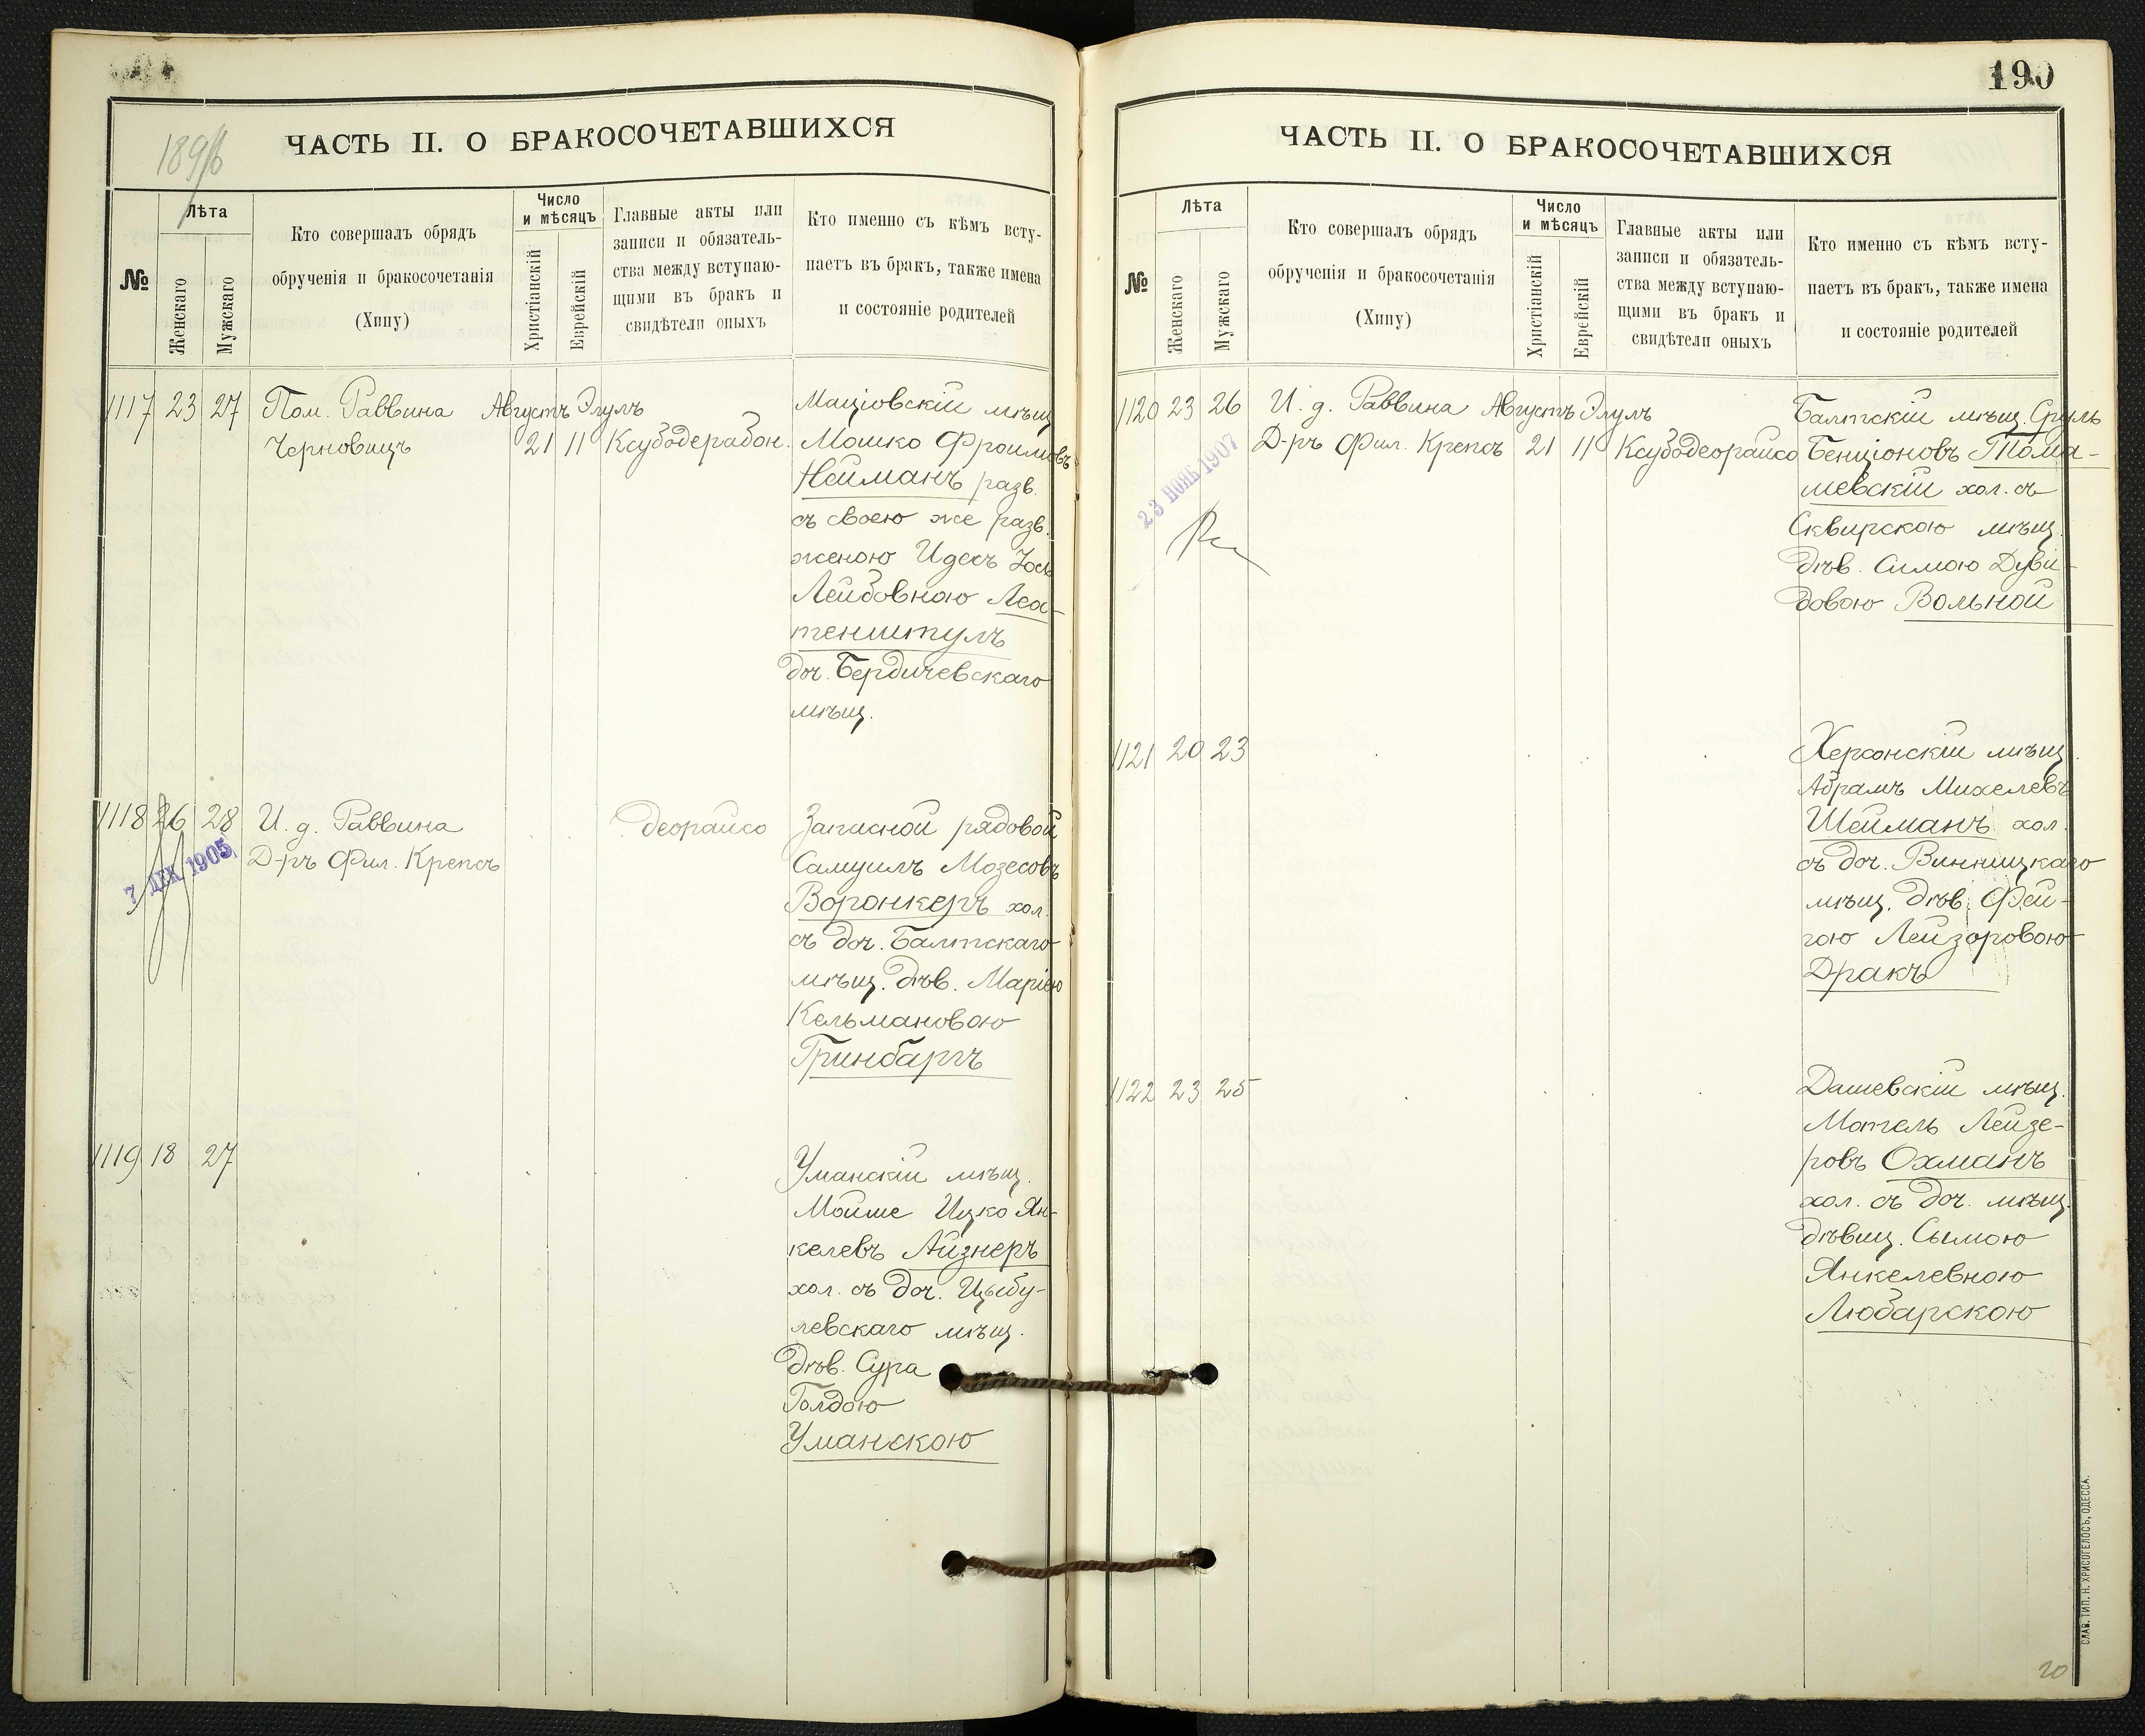 190
1896
ЧАСТЬ II. О БРАКОСОЧЕТАВШИХСЯ
№
Лѣта
Женскаго
Мужскаго
Кто совершалъ обрядъ
обрученія и бракосочетанія
(Хипу)
Число
и мѣсяцъ
Христіанскій
Еврейскій
Главные акты или
записи и обязатель-
ства между вступаю-
щими въ бракъ и
свидѣтели оныхъ
Кто именно съ кѣмъ всту-
паетъ въ бракъ, также имена
и состояніе родителей
1117 23 27 Пом. Раввина Августъ Элулъ
Черновицъ 21 11 Ксубодерабон.
Маціовскій мѣщ.
Мошко Фроимовъ
Нейманъ разв.
съ своею же разв.
женою Идесъ Іось
Лейбовною
доч. Бердичевскаго
мѣщ.
1118 26 28 И. д. Раввина деорайсо
Д-ръ Фил. Крепсъ
7 ДЕК 1905
Запасной рядовой
Самуилъ Мозесовъ
Воронкеръ хол.
съ доч. Балтскаго
мѣщ. дѣв. Маріею
Кельмановою
Гринбаргъ
1119 18 27
Уманскій мѣщ.
Мойше Ицко Ян-
келевъ Айзнеръ
хол. съ доч. Цыбу-
левскаго мѣщ.
дѣв. Сура
Голдою
Уманскою
ЧАСТЬ II. О БРАКОСОЧЕТАВШИХСЯ
№
Лѣта
Женскаго
Мужскаго
Кто совершалъ обрядъ
обрученія и бракосочетанія
(Хипу)
Число
и мѣсяцъ
Христіанскій
Еврейскій
Главные акты или
записи и обязатель-
ства между вступаю-
щими въ бракъ и
свидѣтели оныхъ
Кто именно съ кѣмъ всту-
паетъ въ бракъ, также имена
и состояніе родителей
1120 23 26 И. д. Раввина Августъ Элулъ
Д-ръ Фил. Крепсъ 21 11 Ксубодеорайсо
23 НОЯБ 1907
Балтскій мѣщ. Сруль
Бенціоновъ Тома-
шевскій хол. съ
Сквирскою мѣщ.
дѣв. Симою Дуви-
довою Вольной
1121 20 23
Херсонскій мѣщ.
Абрамъ Михелевъ
Шейманъ хол.
съ доч. Винницкаго
мѣщ. дѣв. Фей-
гою Лейзоровою
Дракъ
1122 23 25
Дашевскій мѣщ.
Мотель Лейзе-
ровъ Охманъ
хол. съ доч. мѣщ.
дѣвиц. Сымою
Янкелевною
Любарскою
СЛАВ. ТИП. Н. ХРИСОГЕЛОСЪ, ОДЕССА.
20